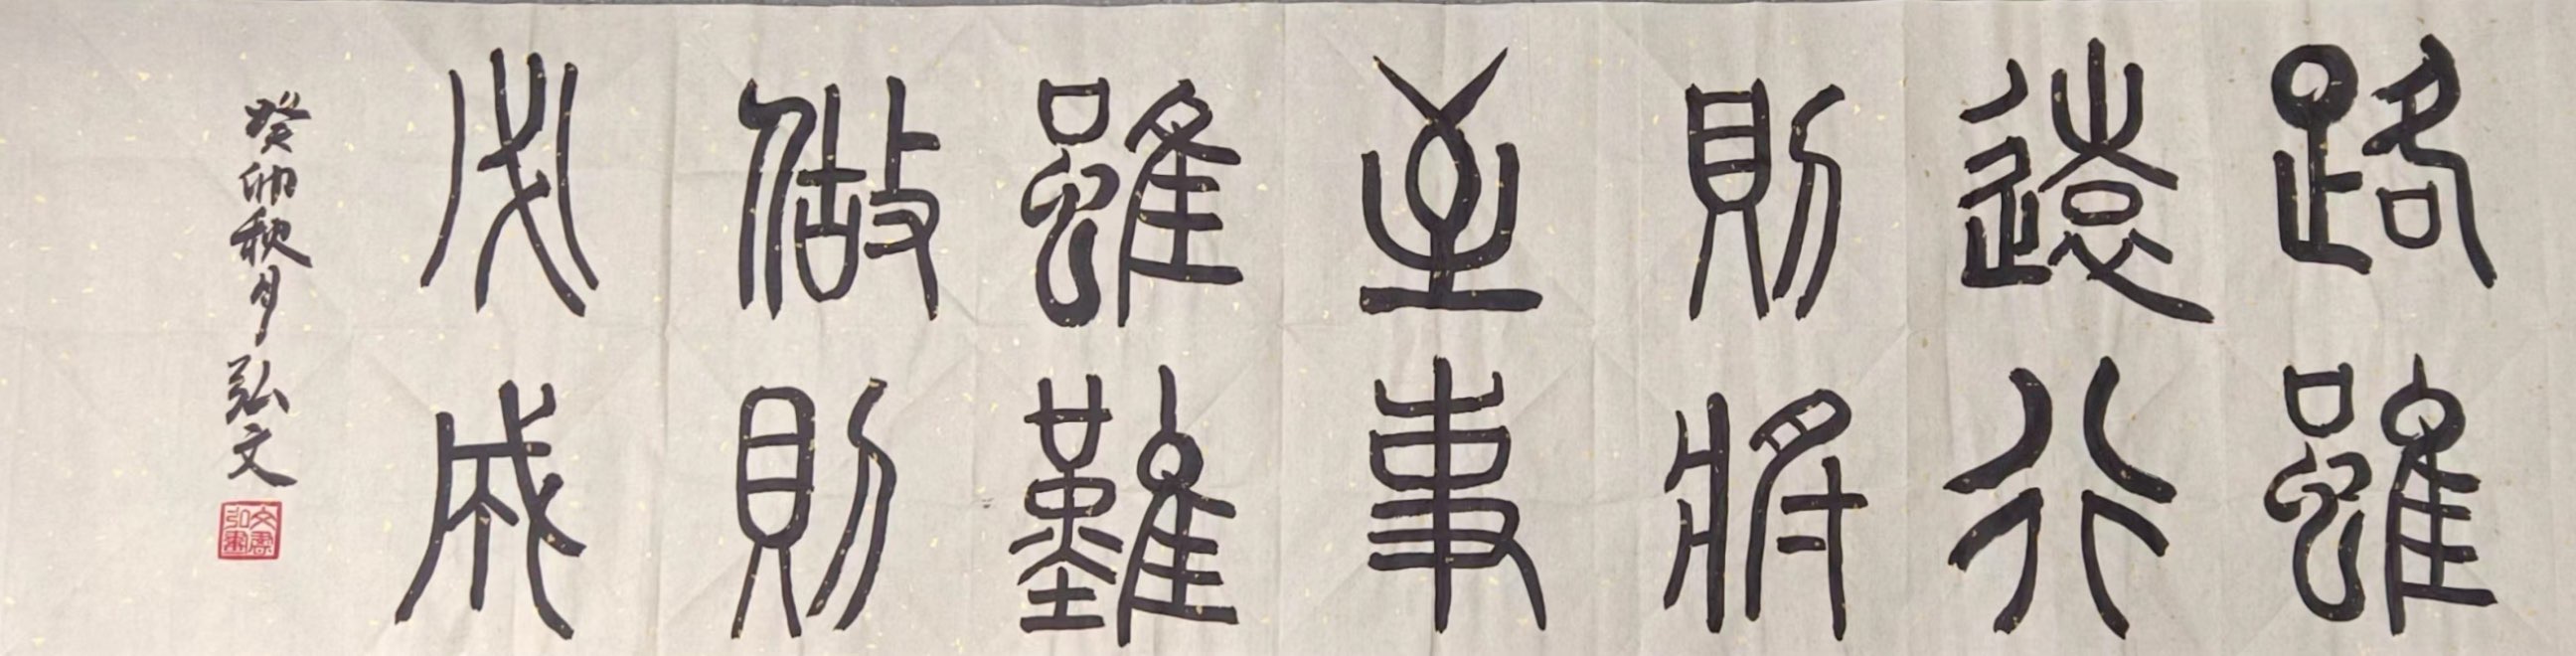 路雖
遠行
則將
至事
雖難
做則
必成
癸卯秋月弘文